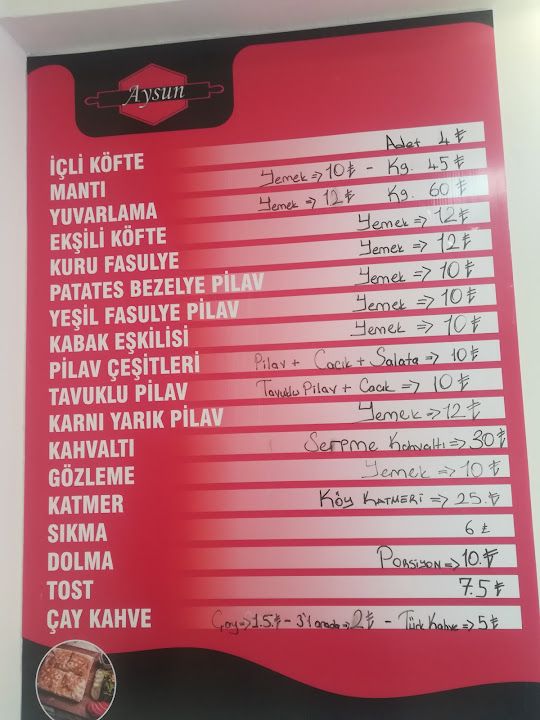 Aysun
İÇLİ KÖFTE Adet 4 ₺
MANTI Yemek => 10 ₺ - Kg. 45 ₺
YUVARLAMA Yemek => 12 ₺ Kg. 60 ₺
EKŞİLİ KÖFTE Yemek => 12 ₺
KURU FASULYE Yemek => 12 ₺
PATATES BEZELYE PİLAV Yemek => 10 ₺
YEŞİL FASULYE PİLAV Yemek => 10 ₺
KABAK EŞKİLİSİ Yemek => 10 ₺
PİLAV ÇEŞİTLERİ Pilav + Cacık + Salata => 10 ₺
TAVUKLU PİLAV Tavuklu Pilav + Cacık => 10 ₺
KARNI YARIK PİLAV Yemek => 12 ₺
KAHVALTI Serpme Kahvaltı => 30 ₺
GÖZLEME Yemek => 10 ₺
KATMER KÖY KATMERİ => 25.₺
SIKMA 6 ₺
DOLMA PORSİYON => 10.₺
TOST 7.5 ₺
ÇAY KAHVE Çay => 1.5.₺ - 3'l arada => 2 ₺ - Türk Kahve => 5 ₺